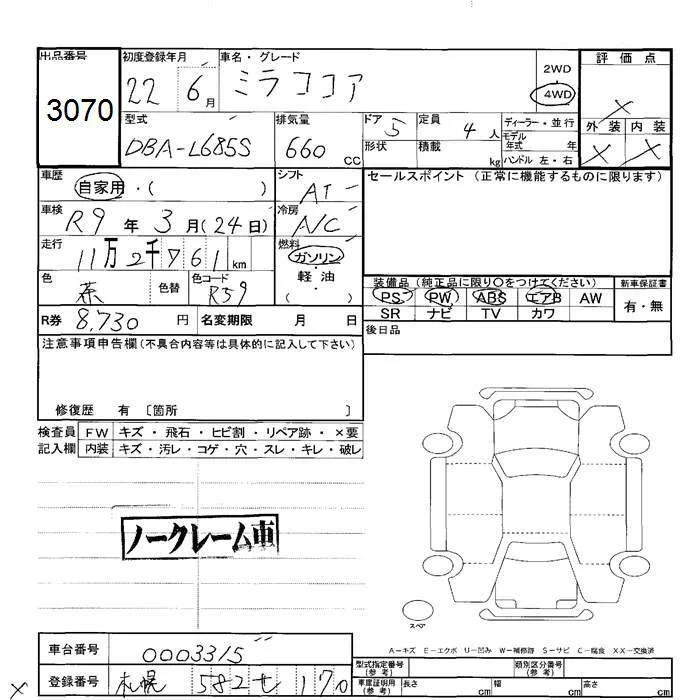 出品番号 初度登録年月 車名・グレード 評価点
3070 22 6月 ミラココア 2WD 4WD ×
型式 排気量 ドア 5 定員 4人 ディーラー・並行 外装 内装
DBA-L685S 660 CC 形状 積載 kg モデル年式 年 × ×
ハンドル 左・右
車歴 シフト セールスポイント (正常に機能するものに限ります)
自家用・( ) AT
車検 冷房
R9年 3月(24日) A/C
走行 燃料
11万2千761km ガソリン・軽油
色 色替 色コード ( )
茶 R59
装備品(純正品に限り○をつけてください) 新車保証書
PS PW ABS エアB AW 有・無
SR ナビ TV カワ
R券 8,730円 名変期限 月 日
後日品
注意事項申告欄(不具合内容等は具体的に記入して下さい)
修復歴 有 〔箇所 〕
検査員 FW キズ・飛石・ヒビ割・リペア跡・×要
記入欄 内装 キズ・汚レ・コゲ・穴・スレ・キレ・破レ
ノークレーム車
スペア
A-キズ E-エクボ U-凹み W-補修跡 S-サビ C-腐食 XX-交換済
車台番号 0003315
型式指定番号(参考) 類別区分番号(参考)
登録番号 札幌 582 セ 170
車庫証明用(参考) 長さ cm 幅 cm 高さ cm
×